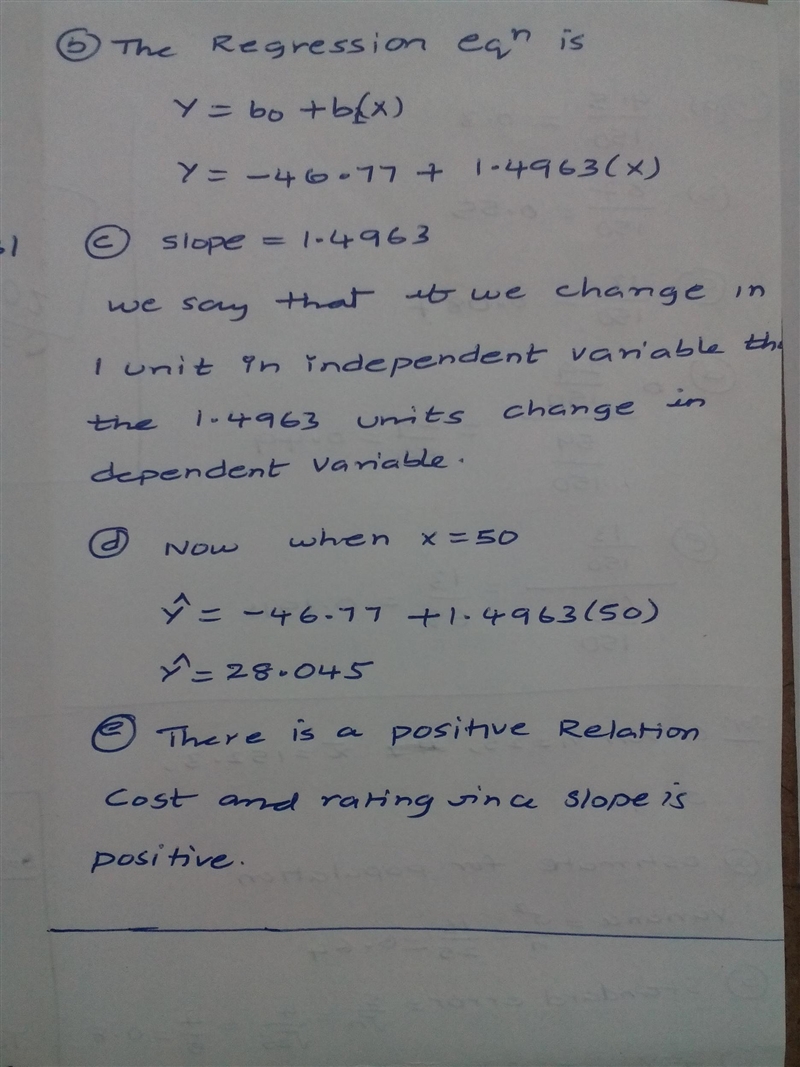 (b) The Regression eqn is
Y = b0 + b1(x)
Y = -46.77 + 1.4963(x)
(c) slope = 1.4963
we say that if we change in
1 unit in independent variable the
the 1.4963 units change in
dependent variable.
(d) Now when x = 50
Ŷ = -46.77 + 1.4963(50)
Ŷ = 28.045
(e) There is a positive Relation
Cost and rating since slope is
positive.